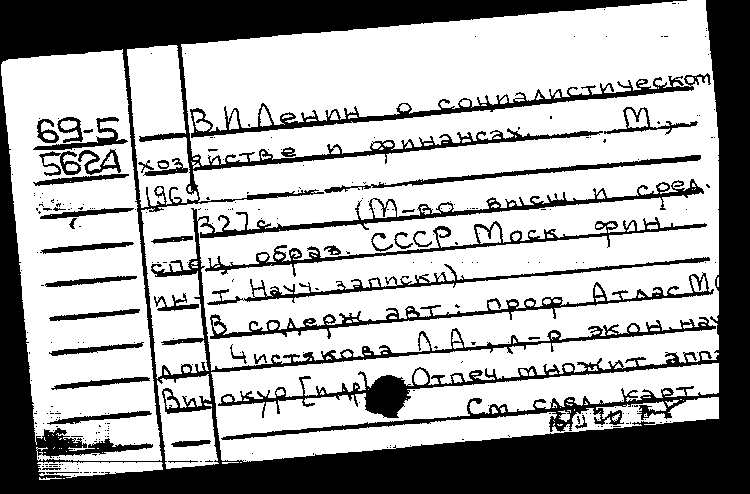 69-5
5624
В.И.Ленин о социалистическом
хозяйстве и финансах. М.,
1969.
327с. (М-во высш. и сред.
спец. образ. СССР. Моск. фин.
ин-т. Науч. записки).
В содерж. авт.: проф. Атлас М.
доц. Чистякова Л.А., д-р экон. нау
Винокур [и др.] Отпеч. множит. аппа
См. след. карт.